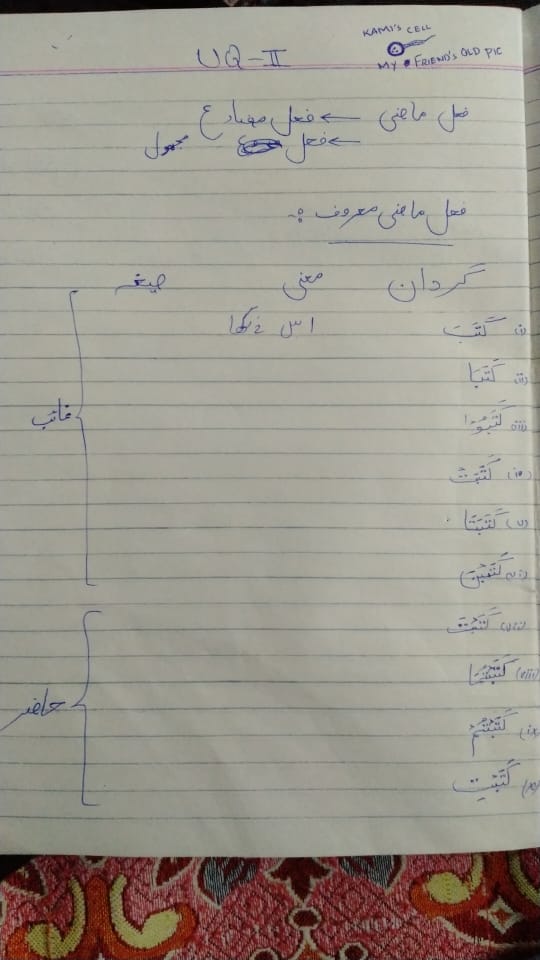 KAMI'S CELL
MY FRIEND'S OLD PIC
UQ-II
فعل ماضی ← فعل مضارع
← فعل مجہول
فعل ماضی معروف :-
گردان معنی صیغہ
(i) كَتَبَ اس نے لکھا
(ii) كَتَبَا
(iii) كَتَبُوْا
(iv) كَتَبَتْ
(v) كَتَبَتَا
(vi) كَتَبْنَ
غائب
(vii) كَتَبْتَ
(viii) كَتَبْتُمَا
(ix) كَتَبْتُمْ
(x) كَتَبْتِ
حاضر